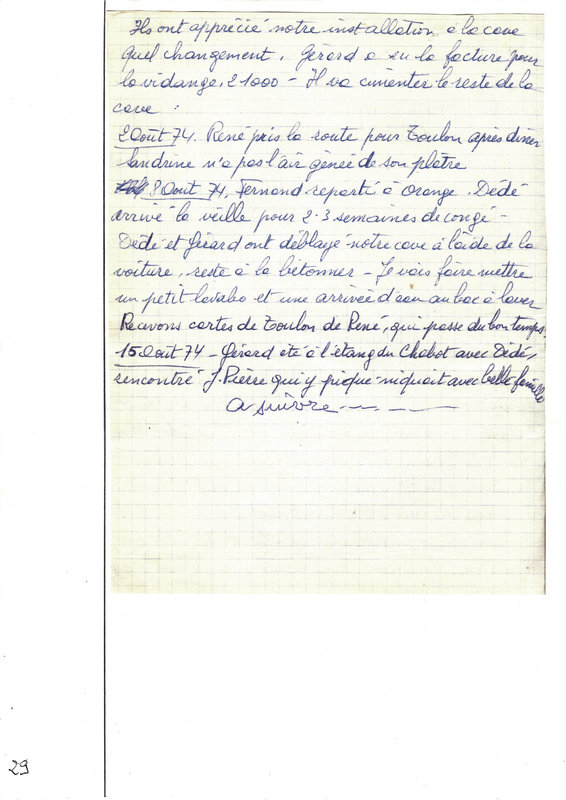 Ils ont apprécié notre installation à la cave
Quel changement. Gérard a eu la facture pour
la vidange, 21000 - Il va cimenter le reste de la
cave :
2 Août 74. René pris la route pour Toulon après dîner
landrine n'a pas l'air gênée de son plâtre
8 Août 74, Fernand reparti à Orange. Dédé
arrivé la veille pour 2-3 semaines de congé -
Dédé et Gérard ont déblayé notre cave à l'aide de la
voiture, reste à la bétonner - Je vais faire mettre
un petit lavabo et une arrivée d'eau au bac à laver
Recevons cartes de Toulon de René, qui passe du bon temps.
15 Août 74 - Gérard été à l'étang du Chabot avec Dédé,
rencontré J. Pierre qui y pique-niquait avec belle-famille
A suivre - - - -
29